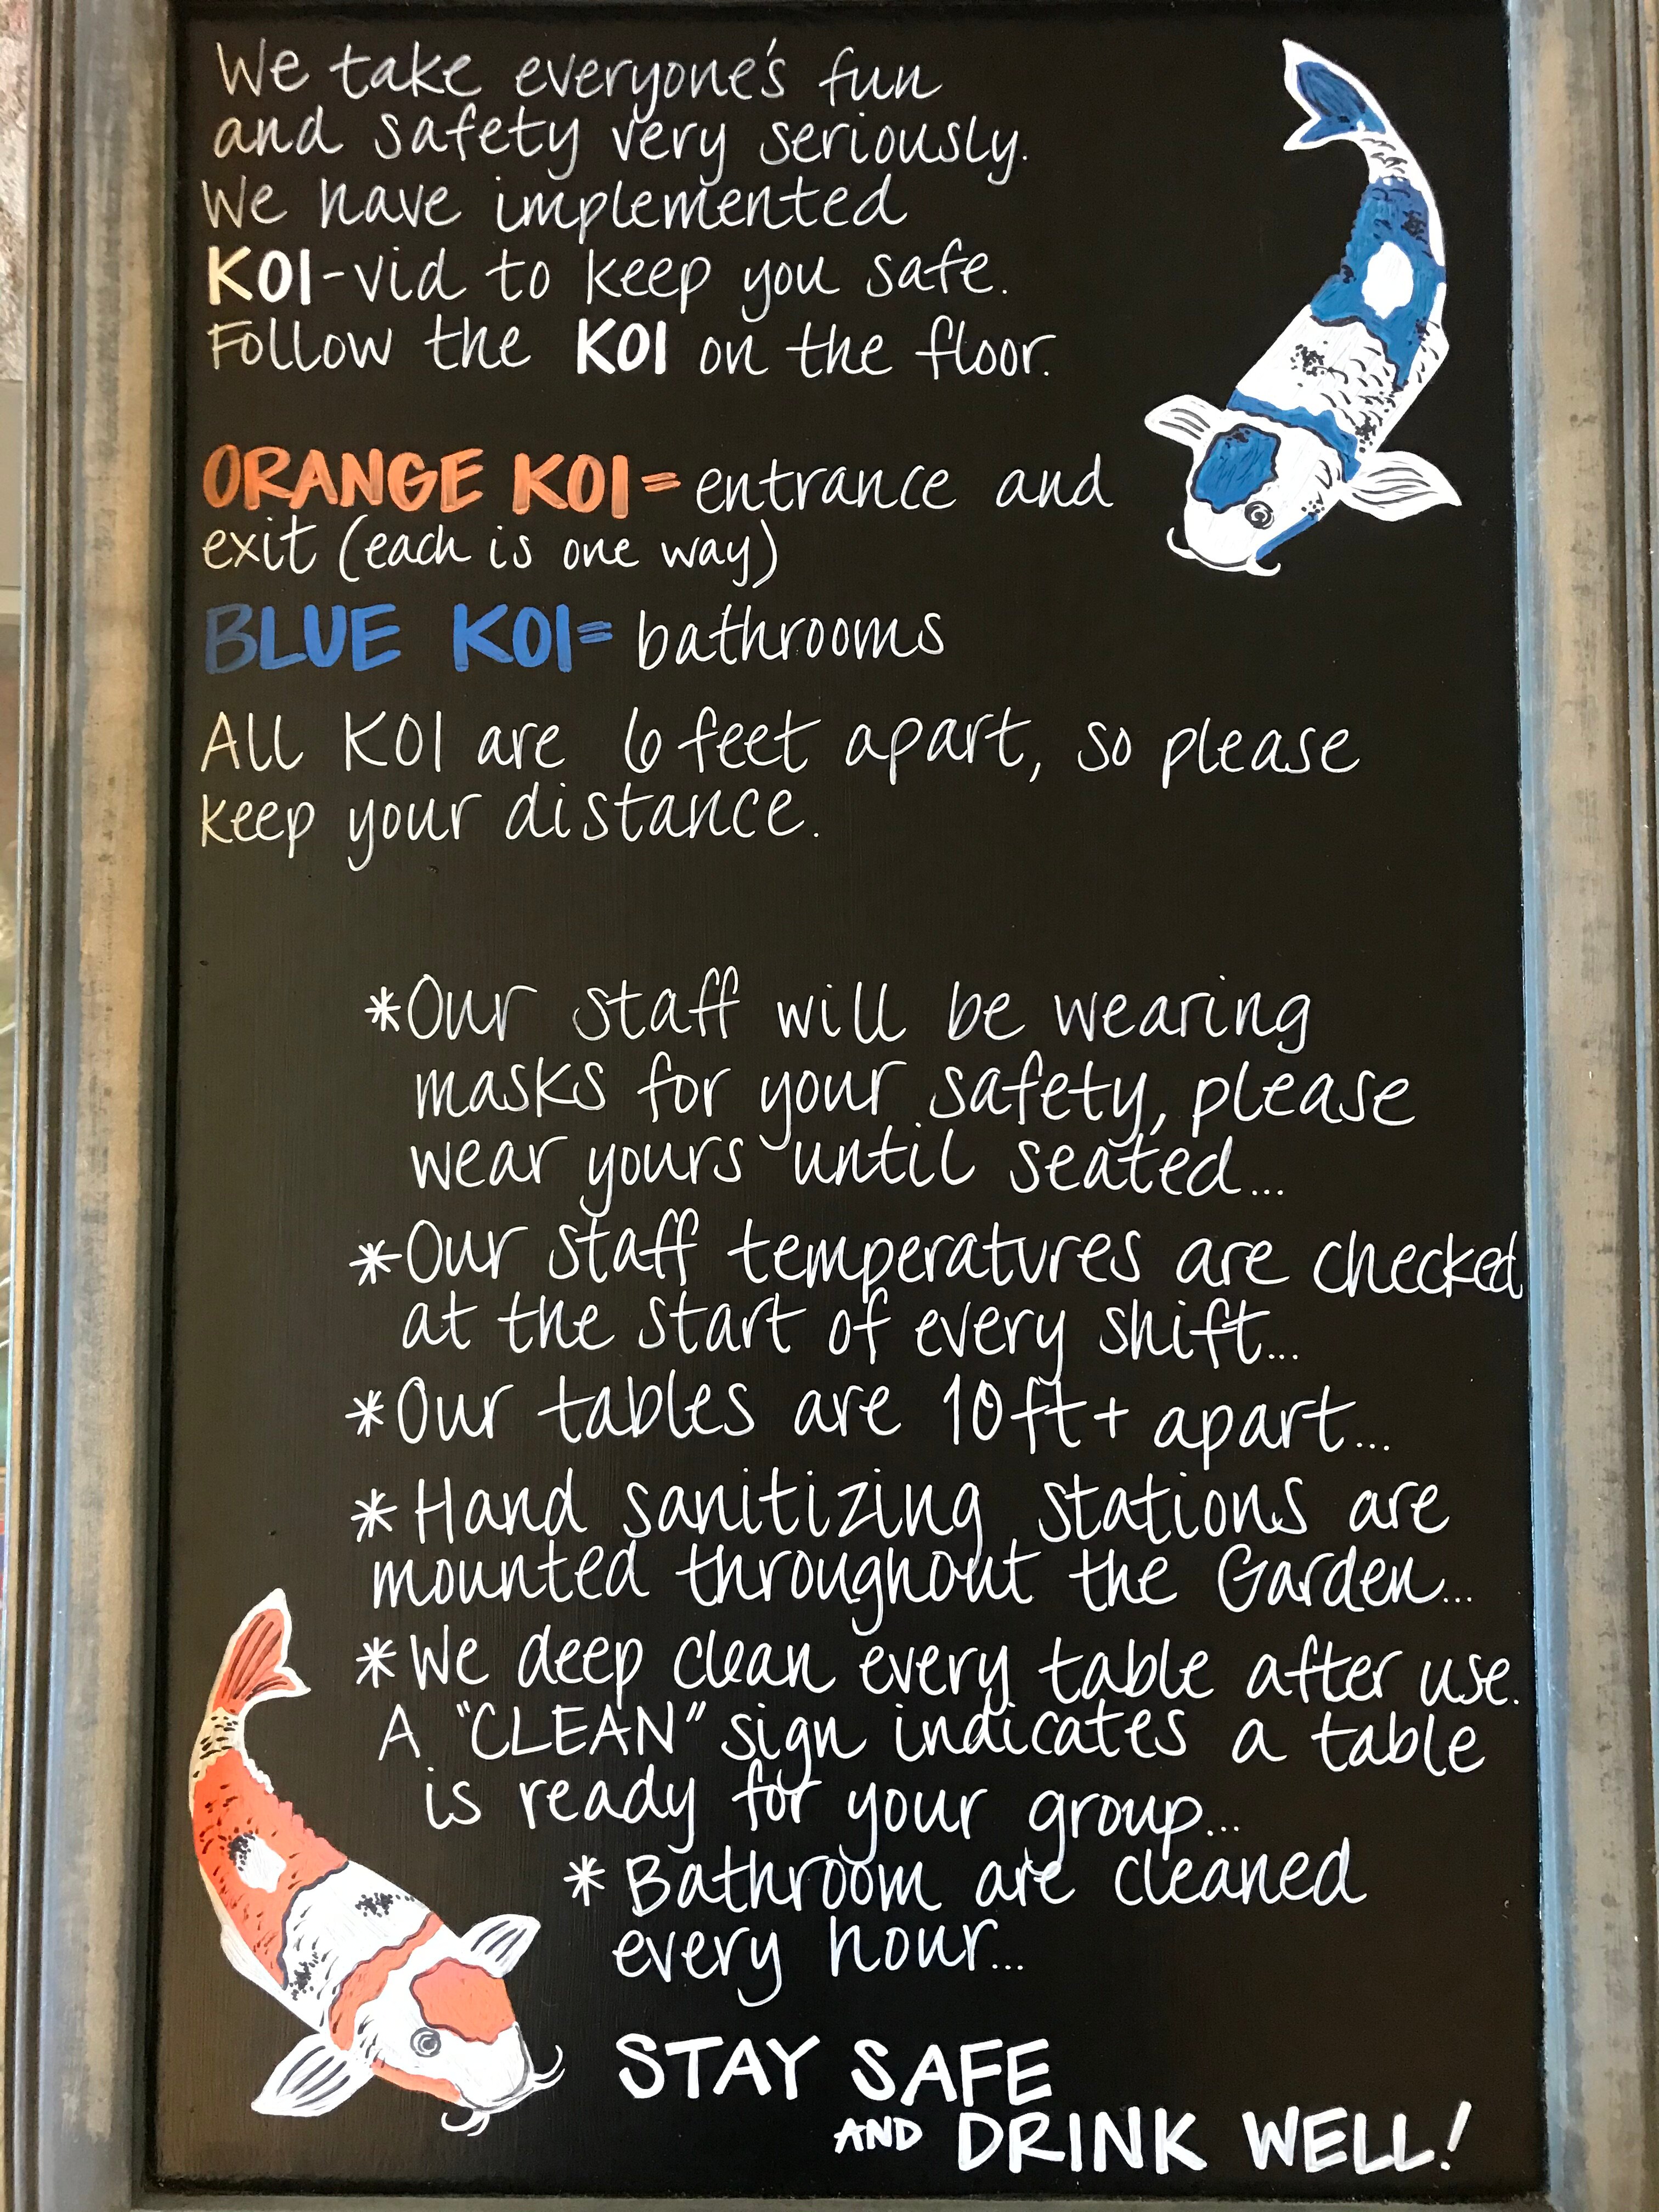 We take everyone's fun
and safety very seriously.
We have implemented
KOI-vid to keep you safe.
Follow the KOI on the floor.
ORANGE KOI= entrance and
exit (each is one way)
BLUE KOI= bathrooms
All KOI are 6 feet apart, so please
keep your distance.
*Our staff will be wearing
masks for your safety, please
wear yours until seated...
*Our staff temperatures are checked
at the start of every shift...
*Our tables are 10ft+ apart...
*Hand sanitizing stations are
mounted throughout the Garden...
*We deep clean every table after use.
A "CLEAN" sign indicates a table
is ready for your group...
*Bathroom are cleaned
every hour...
STAY SAFE
AND DRINK WELL!